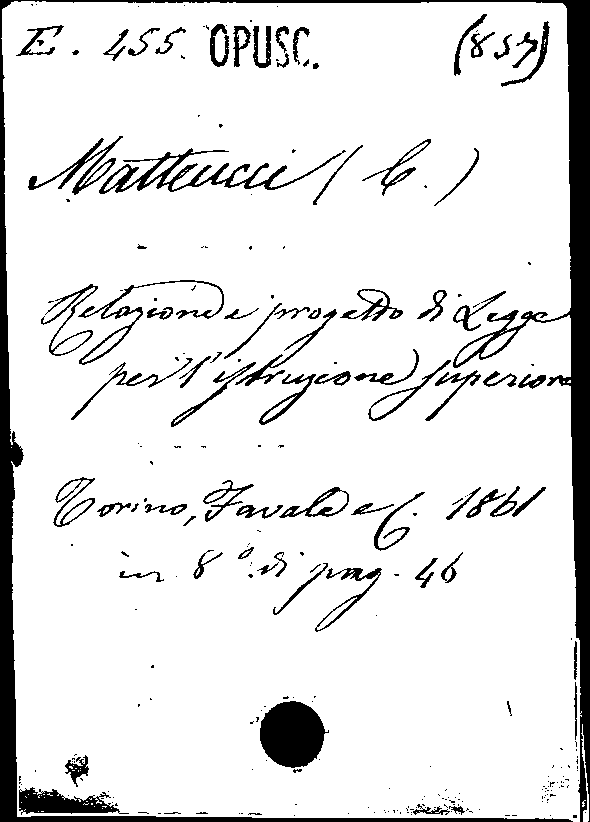 E. 455. OPUSC. (857)
Matteucci (C.)
Relazione e progetto di Legge
per l'istruzione superiore
Torino, Favale e C. 1861
in 8° di pag. 46